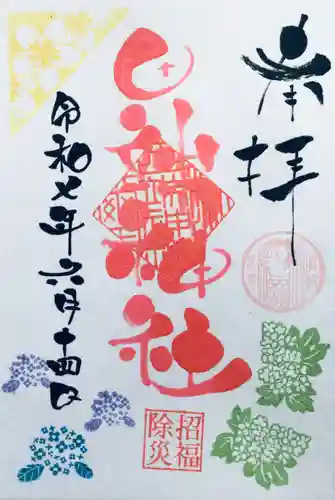 奉拝
神社
令和七年六月十四日
招福
除災